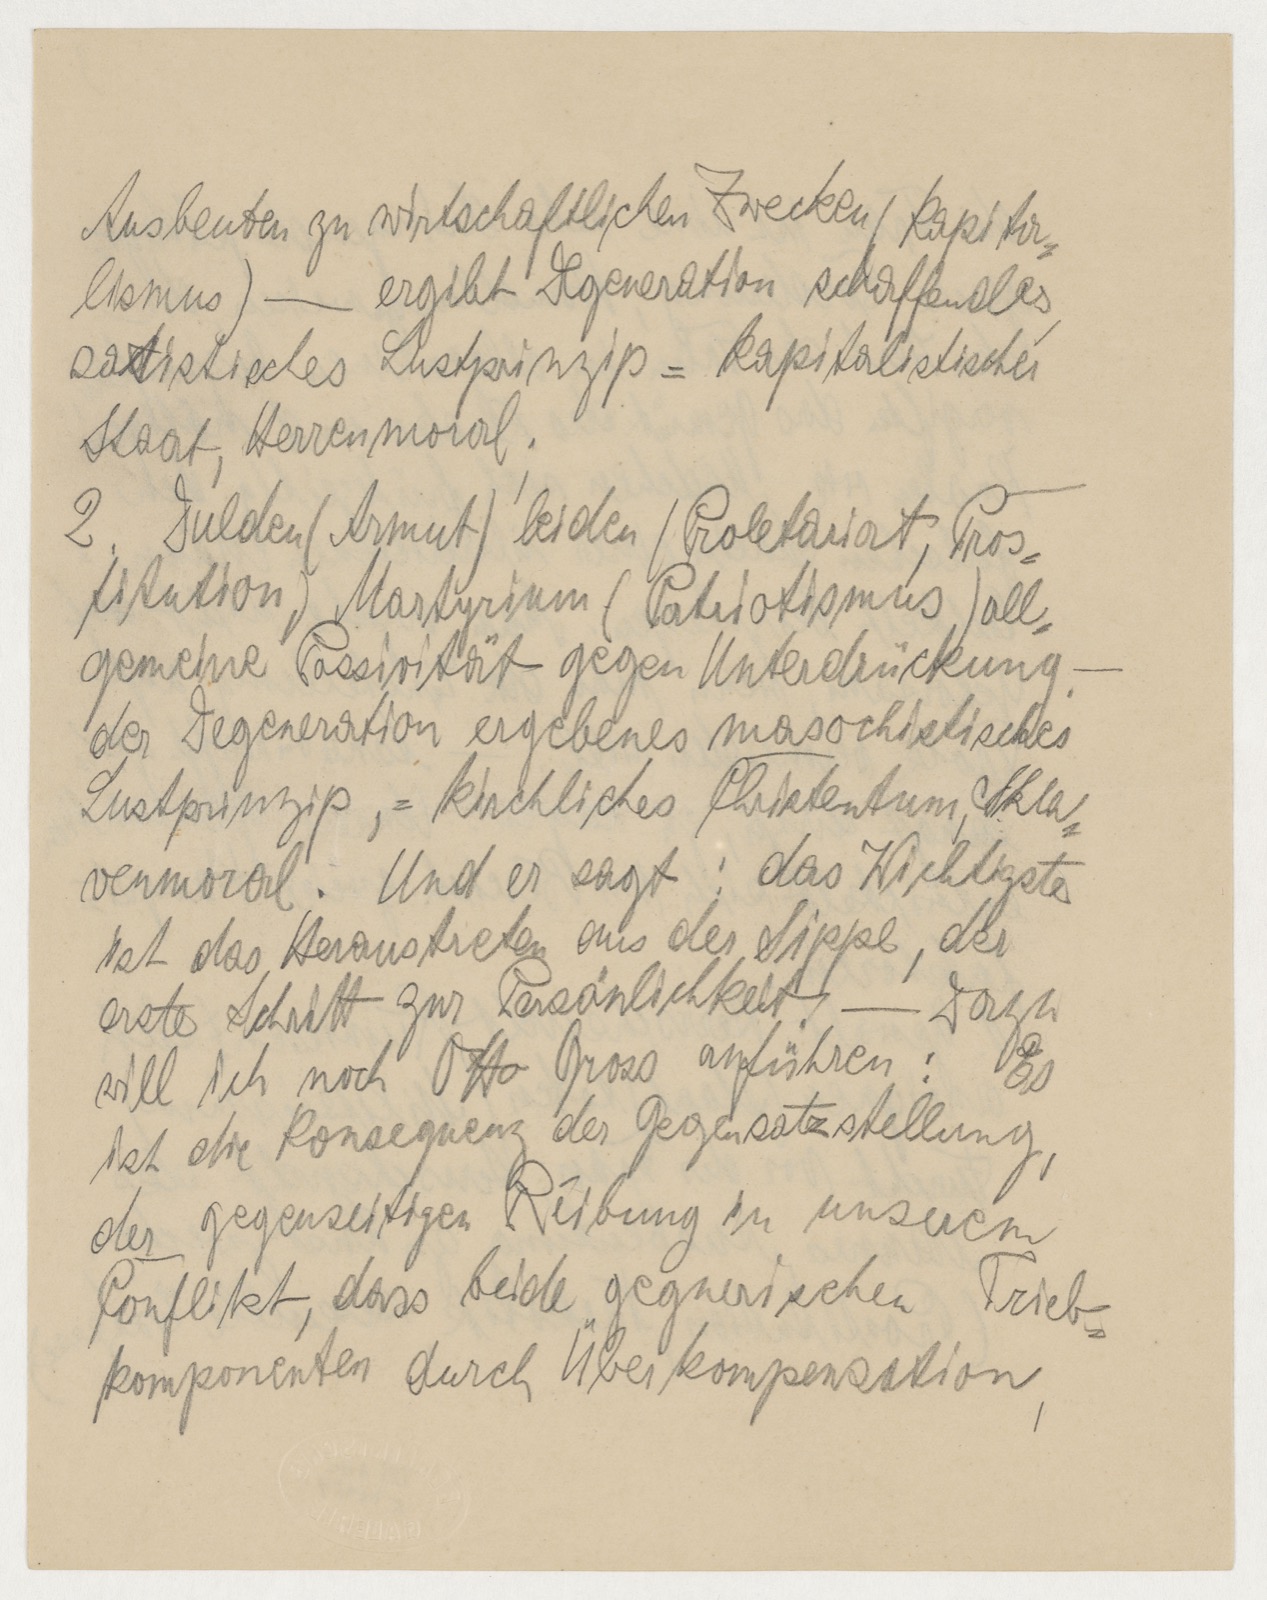 Ausbeuten zu wirtschaftlichen Zwecken (Kapita=
lismus) — ergibt Degeneration schaffendes,
sadistisches Lustprinzip = kapitalistischer
Staat, Herrenmoral;
2. Dulden (Armut) leiden (Proletariat, Pros=
titution,) Martyrium (Patriotismus) all=
gemeine Passivität gegen Unterdrückung —
der Degeneration ergebenes masochistisches
Lustprinzip, = kirchliches Christentum, Skla=
venmoral. Und er sagt: das Wichtigste
ist das Heraustreten aus der Sippe, der
erste Schritt zur Persönlichkeit! — Dazu
will ich noch Otto Gross anführen: Es
ist die Konsequenz der Gegensatzstellung,
der gegenseitigen Reibung in unserem
Conflikt, dass beide gegnerischen Trieb=
komponenten durch Überkompensation,